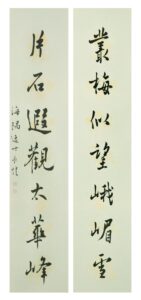 叢梅似望峨嵋雪
片石遐觀太華峰
海陽